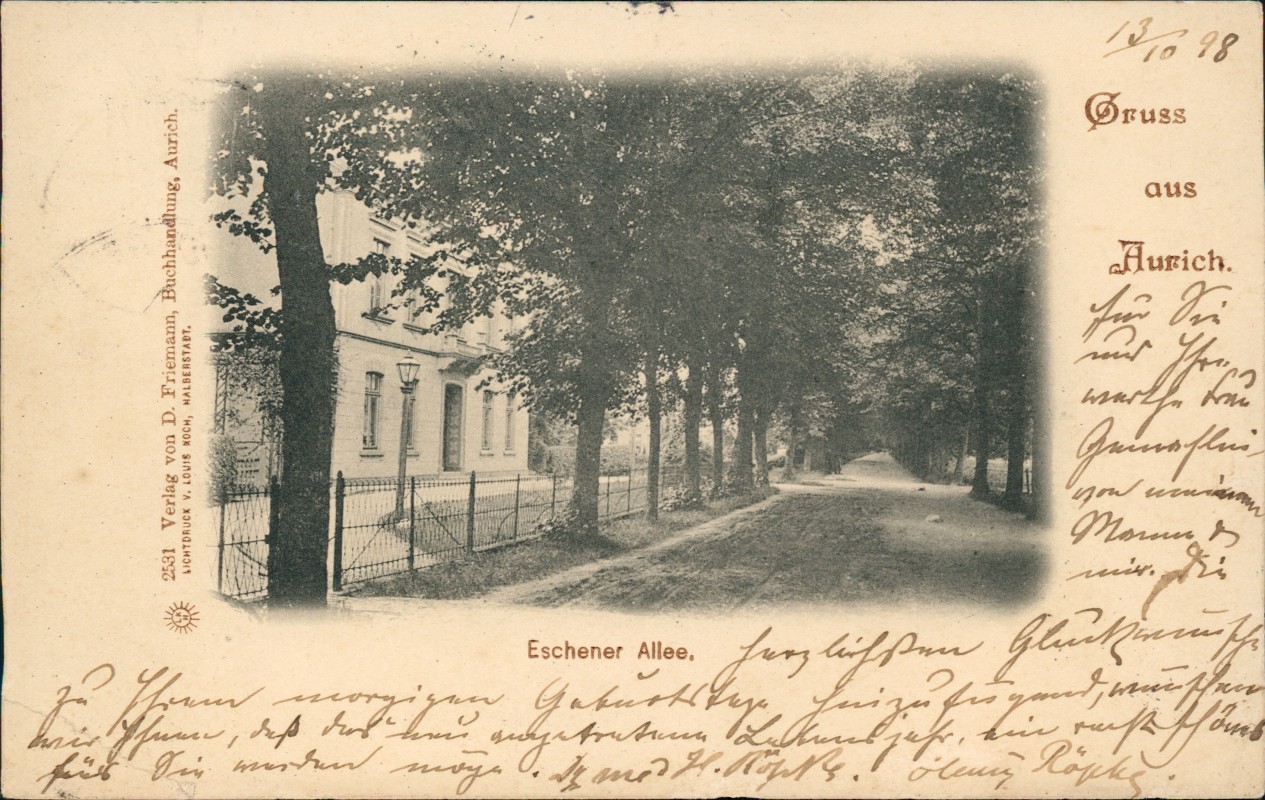 13/10 98
Gruss
aus
Aurich.
für Sie
und Ihre
werthe Frau
Gemahlin
von meinem
Mann &
mir. Die
herzlichsten Glückwünsche
zu Ihrem morgigen Geburtstage hinzufügend, wünschen
wir Ihnen, daß das neu angetretene Lebensjahr, ein recht schönes
für Sie werden möge. Dr med H. Röpke. Röpke.
Eschener Allee.
2531 Verlag von D. Friemann, Buchhandlung, Aurich.
LICHTDRUCK V. LOUIS KOCH, HALBERSTADT.